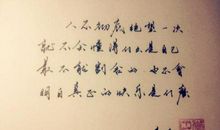 人不彻底绝望一次
就不会懂得什么是自己
最不能割舍的 也不会
明白真正的快乐是什麼